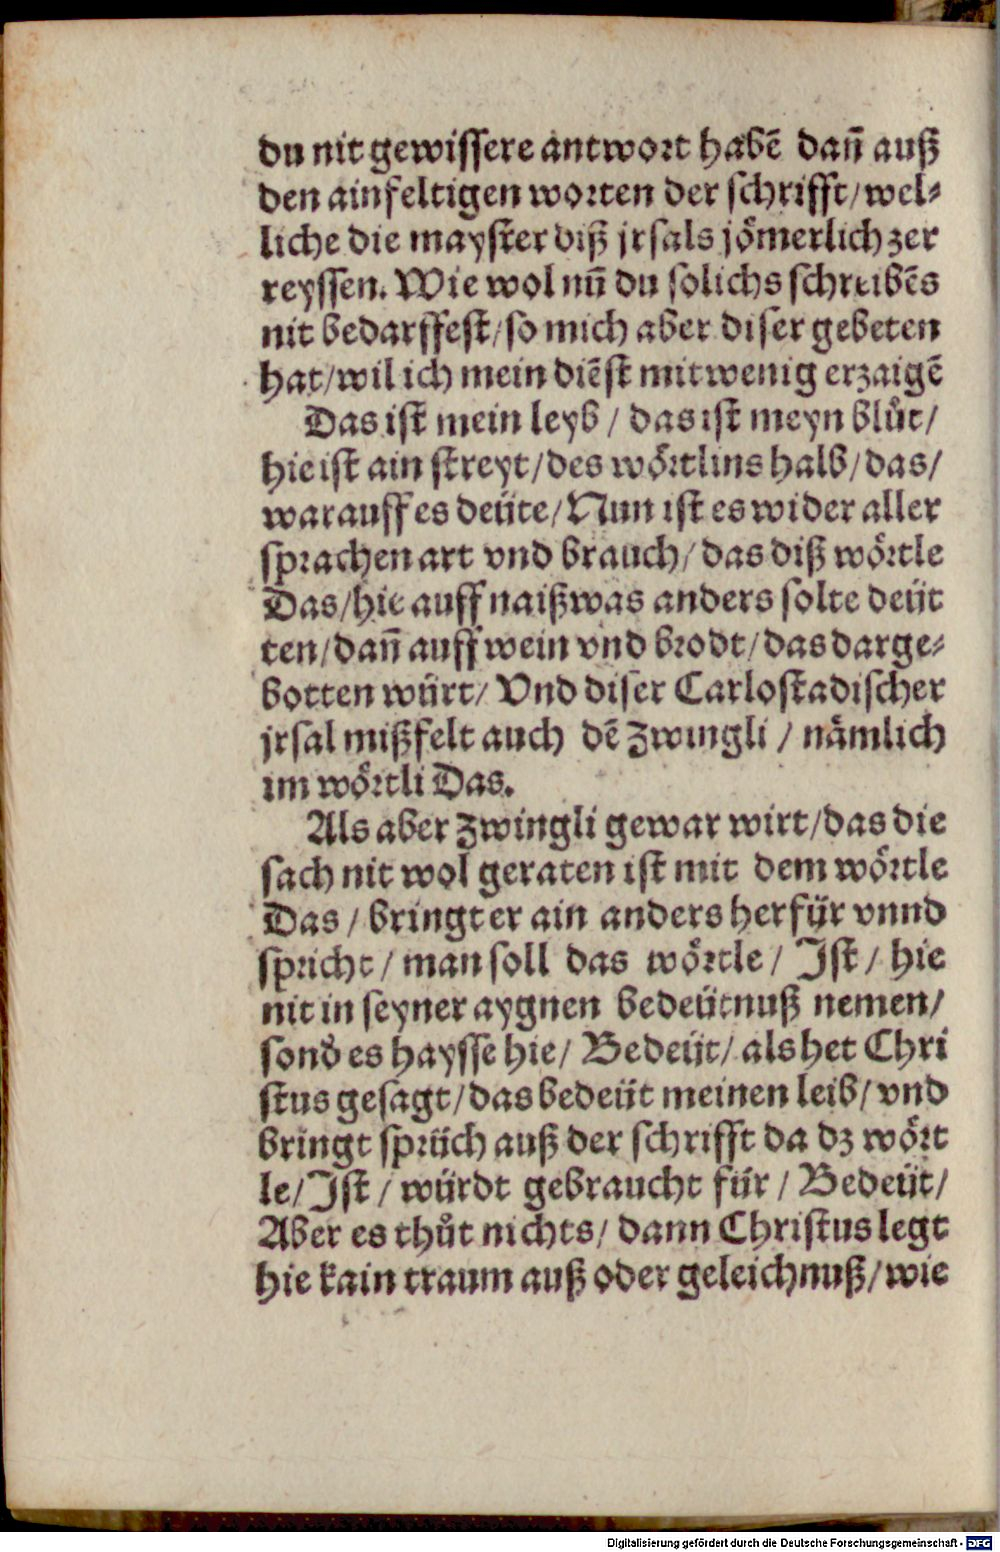 du nit gewissere antwort habē dañ auß
den ainfeltigen worten der schrifft/wel⸗
liche die mayster diß jrsals jömerlich zer
reyssen. Wie wol nun̄ du solichs schreibēs
nit bedarffest/so mich aber diser gebeten
hat/wil ich mein diēst mit wenig erzaigē
Das ist mein leyb / das ist meyn blůt/
hie ist ain streyt/des wörtlins halb/das/
warauff es deüte/Nun ist es wider aller
sprachen art vnd brauch/das diß wörtle
Das/hie auff naißwas anders solte deüt
ten/dañ auff wein vnd brodt/das darge⸗
botten würt/ Vnd diser Carlostadischer
jrsal mißfelt auch dē Zwingli / nämlich
im wörtli Das.
Als aber Zwingli gewar wirt/das die
sach nit wol geraten ist mit dem wörtle
Das / bringt er ain anders herfür vnnd
spricht / man soll das wörtle / Ist / hie
nit in seyner aygnen bedeütnuß nemen/
sond̕ es haysse hie/ Bedeüt/ als het Chri
stus gesagt/das bedeüt meinen leib/ vnd
bringt sprüch auß der schrifft da dz wört
le/Ist / würdt gebraucht für / Bedeüt/
Aber es thůt nichts/ dann Christus legt
hie kain traum auß oder geleichnuß/wie
Digitalisierung gefördert durch die Deutsche Forschungsgemeinschaft - DFG